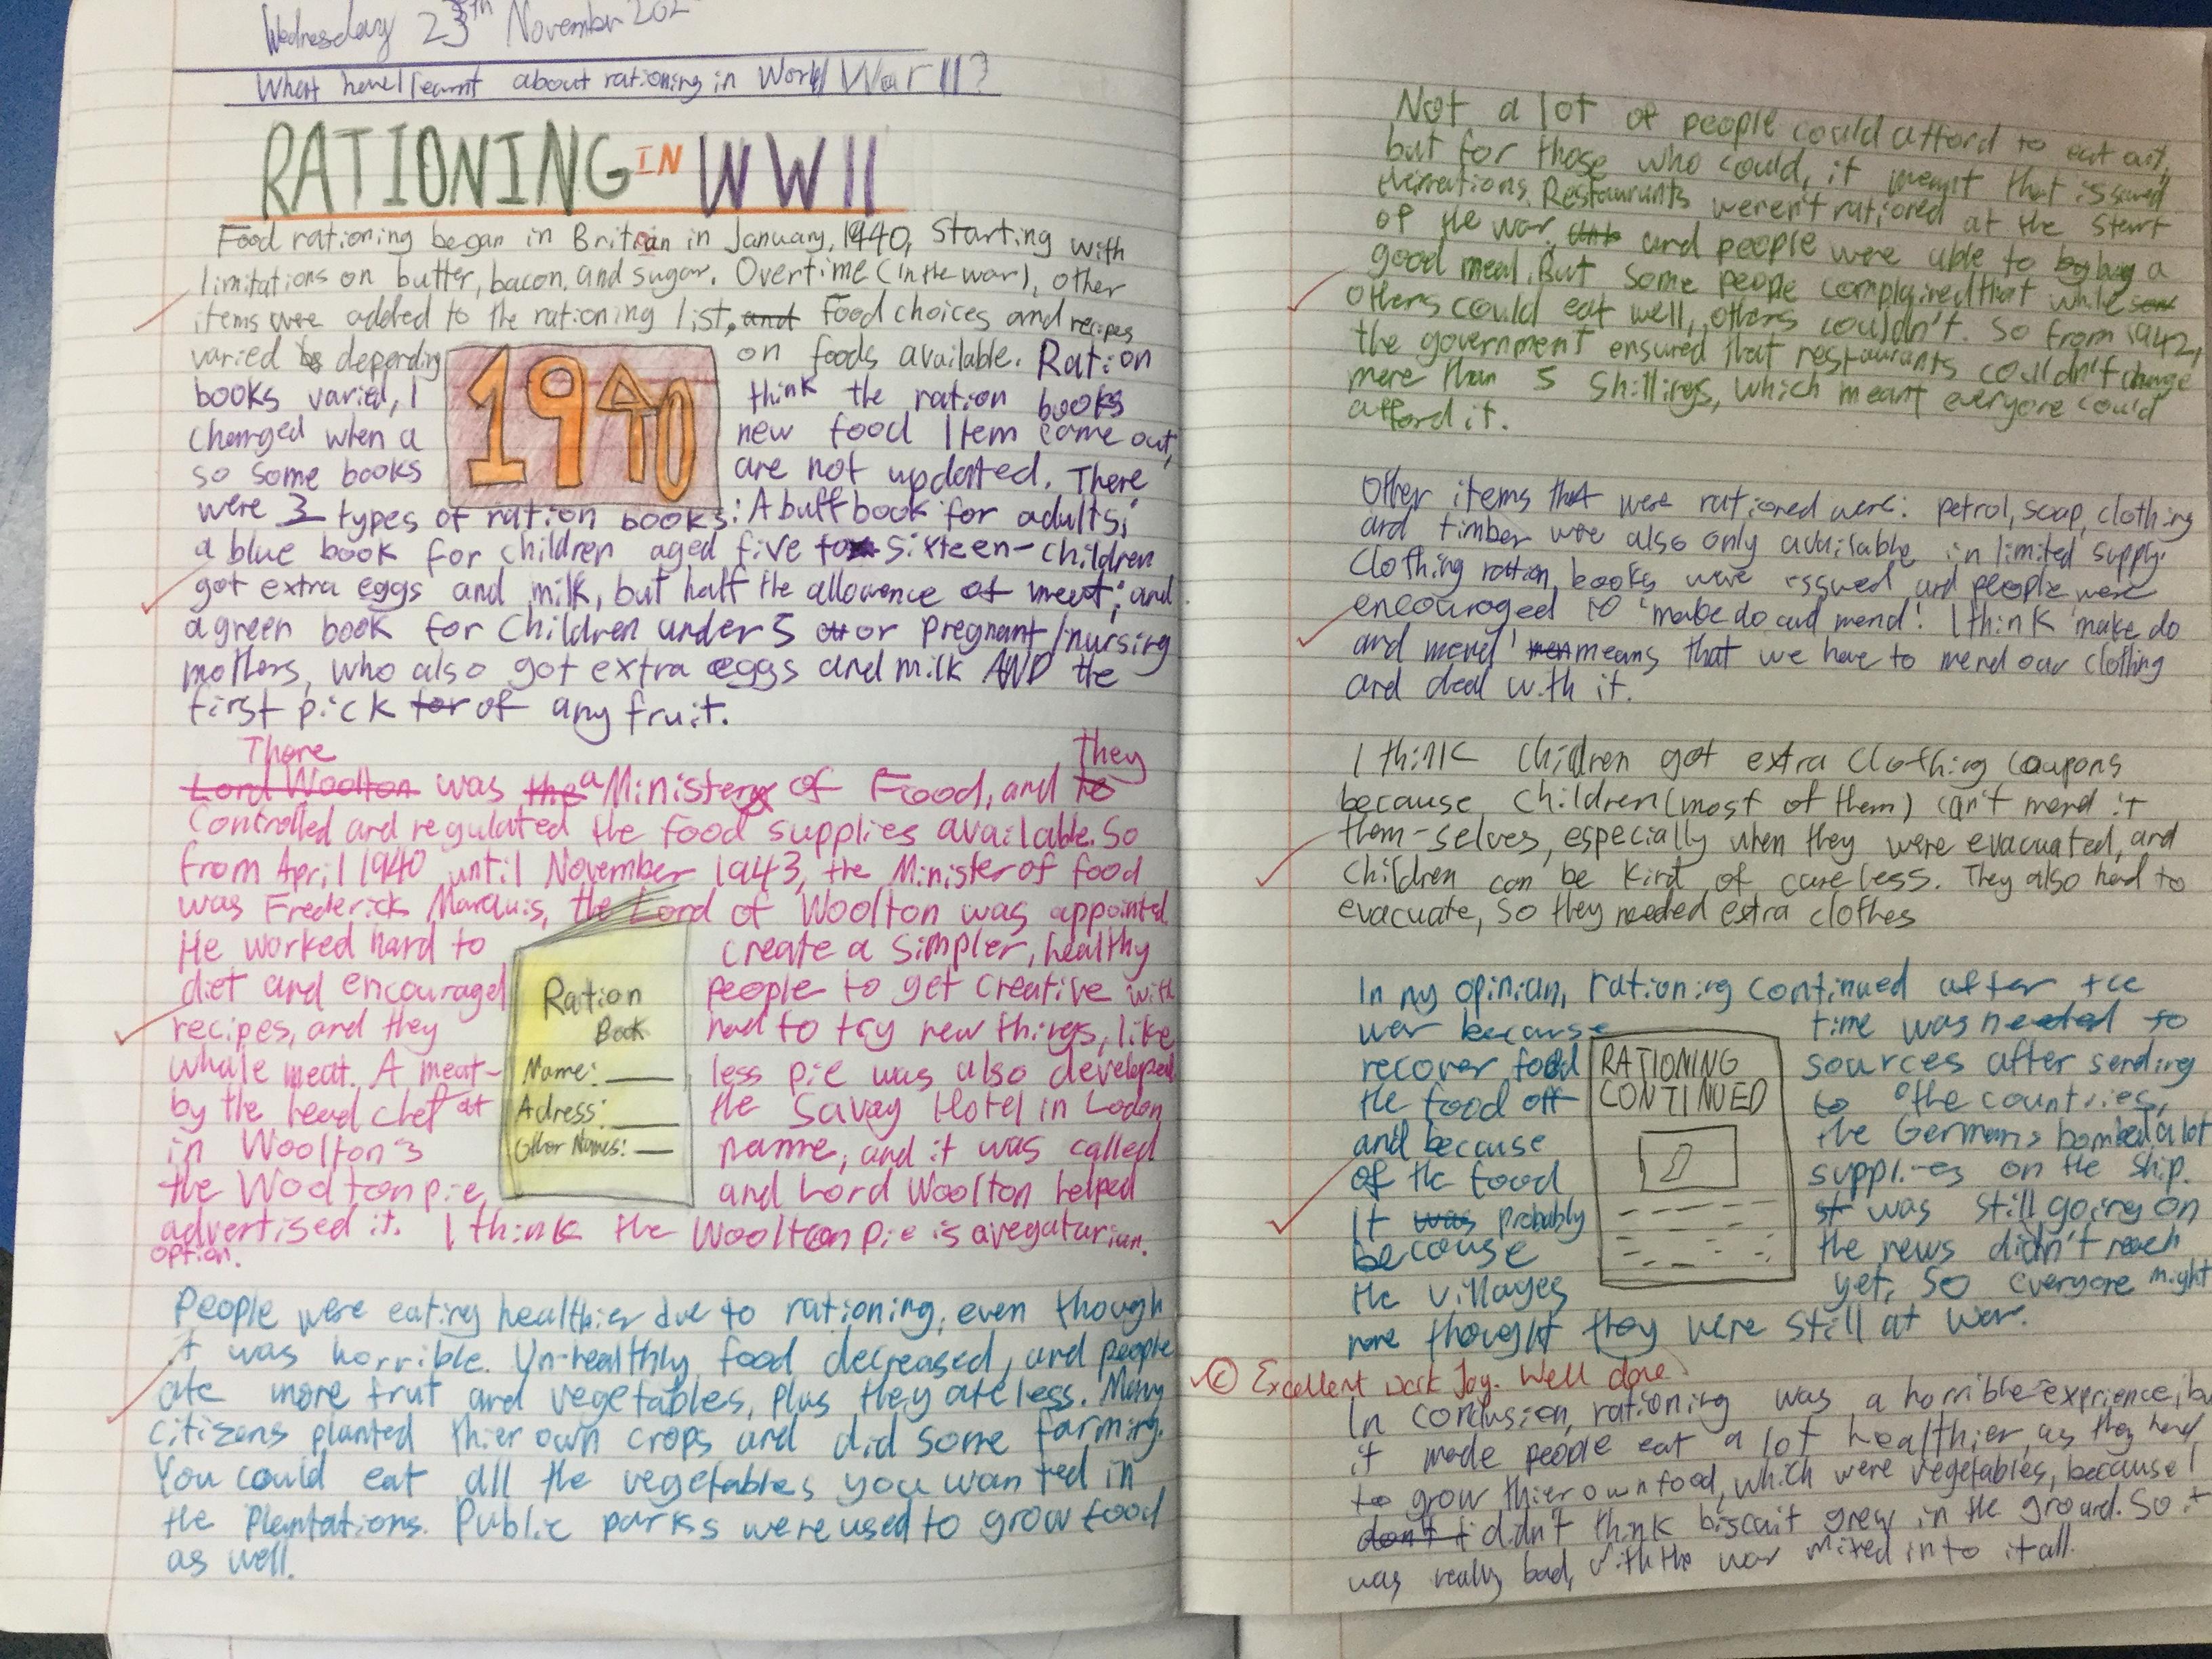 Wednesday 23th November 202
What have I learnt about rationing in World War II?
RATIONING IN WWII
Food rationing began in Britain in January, 1940, starting with
limitations on butter, bacon, and sugar. Overtime (in the war), other
items were added to the rationing list, and Food choices and recipes
varied depending on foods available. Ration
books varied, I think the ration books
changed when a new food Item came out,
so some books are not updated. There
1940
were 3 types of ration books: A buff book for adults;
a blue book for children aged five to sixteen- children
got extra eggs and milk, but half the allowence of meat; and
a green book for children under 5 or pregnant/nursing
mothers, who also got extra eggs and milk AND the
first pick for of any fruit.
There They
Lord Woolton was the a Ministery of Food, and to
controlled and regulated the food supplies available. So
from April 1940 until November 1943, the Minister of food
was Frederick Marquis, the Lord of Woolton was appointed
He worked hard to create a simpler, healthy
diet and encouraged people to get creative with
recipes, and they had to try new things, like
whale meat. A meat- less pie was also developed
by the head chef at the Savay Hotel in Lodon
in Woolton's name, and it was called
the Woolton pie, and Lord Woolton helped
Ration
Book
Name:
Adress:
Other Names:
advertised it. I think the Woolton pie is a vegatarian
option.
People were eating healthier due to rationing, even though
it was horrible. Un-healthly food decreased, and people
ate more frut and vegetables, plus they ate less. Many
citizens planted thier own crops and did some farming.
You could eat all the vegetables you wanted in
the Plentations. Public parks were used to grow food
as well.
Not a lot of people could afford to eat out,
but for those who could, it meant that is saved
their rations. Restaurants weren't rationed at the start
of the war, and people were able to buy a
good meal. But some people complained that while
others could eat well, others couldn't. So from 1942,
the government ensured that restaurants couldn't charge
more than 5 shillings, which meant everyone could
afford it.
Other items that were rationed were: petrol, soap, clothing
and timber were also only available in limited supply.
Clothing ration books were issued and people were
encouraged to 'make do and mend'. I think 'make do
and mend' means that we have to mend our clothing
and deal with it.
I think children got extra clothing coupons
because children (most of them) can't mend it
them-selves, especially when they were evacuated, and
children can be kind of careless. They also had to
evacuate, so they needed extra clothes
In my opinian, rationing continued after the
war because time was needed to
recover food sources after sending
the food off to the countries,
and because the Germans bombed a lot
of the food supplies on the ship.
It was probably was still going on
because the news didn't reach
the villages yet, so everyone might
RATIONING
CONTINUED
have thought they were still at war.
© Excellent work Joy. Well done
In conclusion, rationing was a horrible exprience, bu
it made people eat a lot healthier, as they had
to grow thier own food, which were vegetables, because I
don't didn't think biscait grew in the ground. So it
was really bad, with the war mixed in to it all.